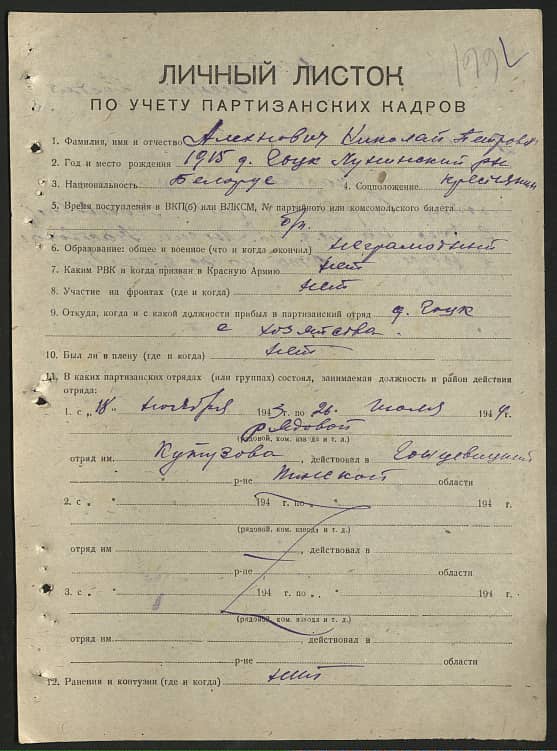 ЛИЧНЫЙ ЛИСТОК
ПО УЧЕТУ ПАРТИЗАНСКИХ КАДРОВ
1. Фамилия, имя и отчество Алехнович Николай Петрович
2. Год и место рождения 1915 д. Гоцк Лунинский р-н
3. Национальность Белорус 4. Соцположение крестьянин
5. Время поступления в ВКП(б) или ВЛКСМ, № партийного или комсомольского билета
б/п.
6. Образование: общее и военное (что и когда окончил) неграмотный
7. Каким РВК и когда призван в Красную Армию нет
8. Участие на фронтах (где и когда) нет
9. Откуда, когда и с какой должности прибыл в партизанский отряд д. Гоцк
с хозяйства.
10. Был ли в плену (где и когда) нет
11. В каких партизанских отрядах (или группах) состоял, занимаемая должность и район действия
отряда:
1. с „18" ноября 1943 г. по 26. июля 1944 г.
рядовой
(рядовой, ком. взвода и т. д.)
отряд им. Кутузова, действовал в Ганцевицкий
р-не Пинской области
2. с „ " 194 г. по „ " 194 г.
(рядовой, ком. взвода и т. д.)
отряд им , действовал в
р-не области
3. с „ " 194 г. по „ " 194 г.
(рядовой, ком. взвода и т. д.)
отряд им. , действовал в
р-не области
12. Ранения и контузии (где и когда) нет